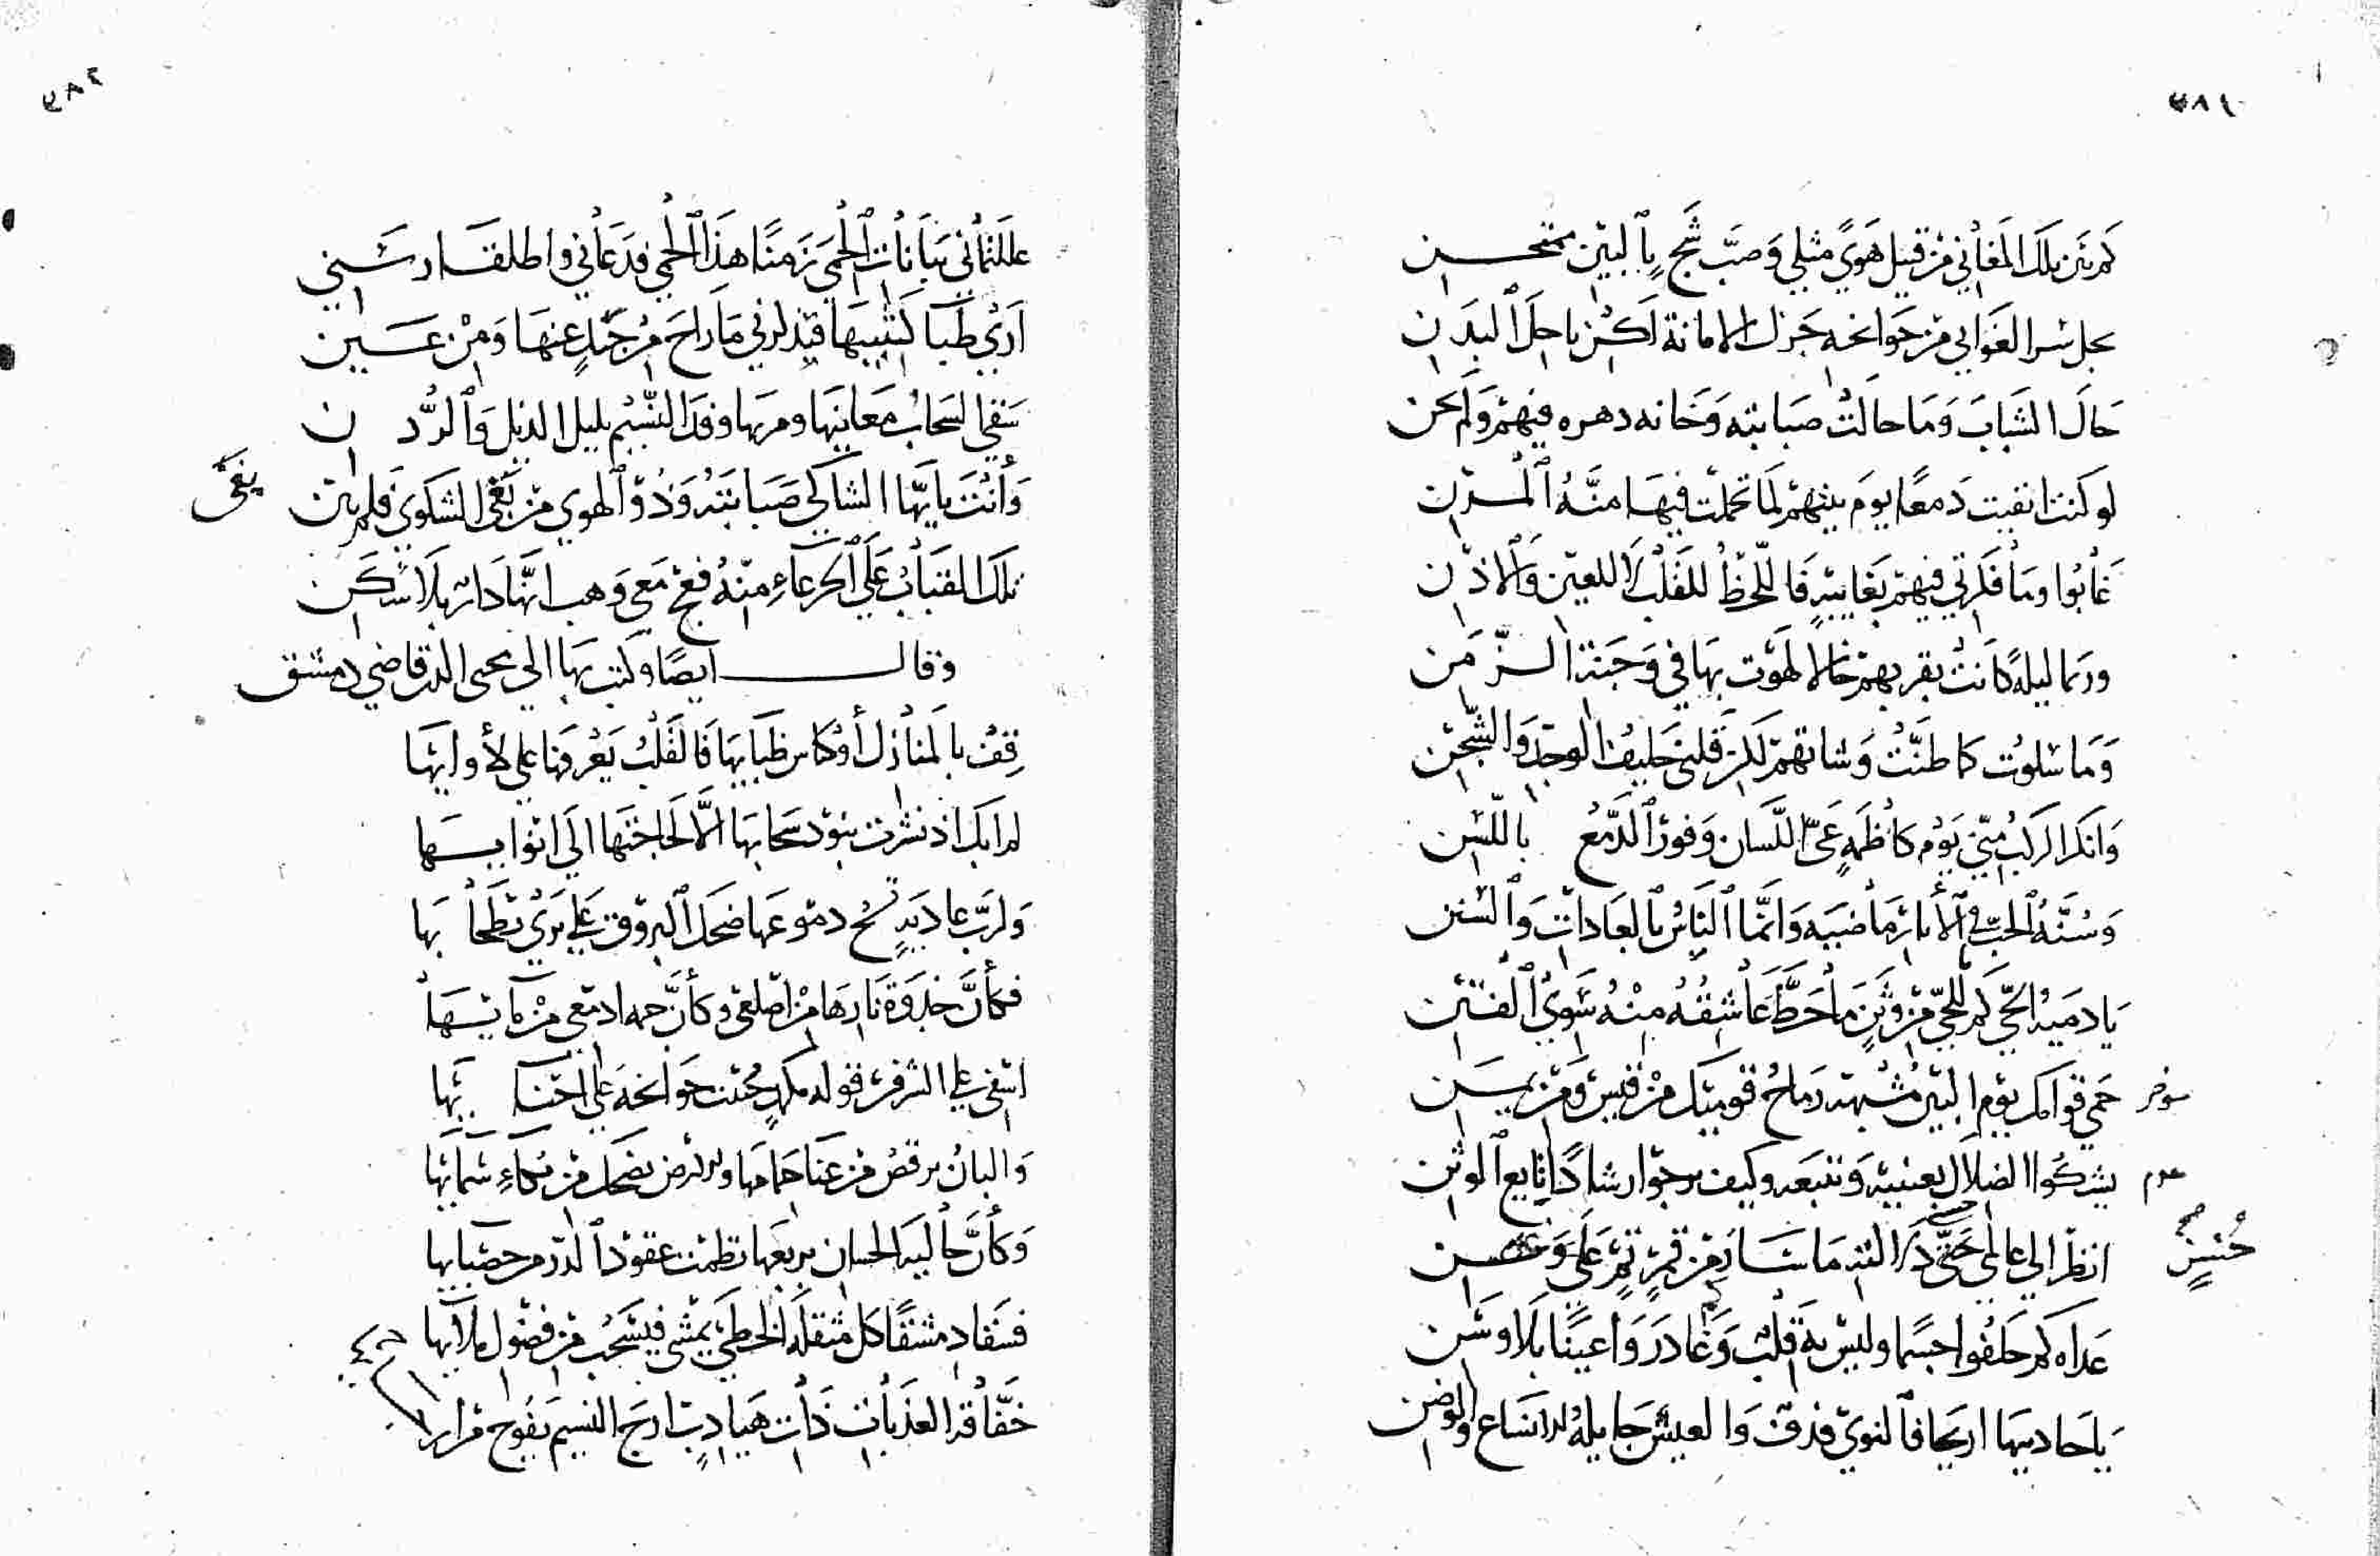 ٣٨١
كم بين تلك المغاني من قتيل هوًى مثلي وصبّ شجٍ بالبين ممتحن
جزل الامانة لكن ناحل البدن
حال الشباب وما حالت صبابته وخانه دهره فيهم ولم يخن
لو كنت ابقيت دمعًا يوم بينهم لما تحملت فيها منّة المزن
غابوا وما فكرتي فيهم بغايبةٍ فاللحظ للقلب لا للعين والاذن
وربما ليلة كانت بقربهم خالا لهوت بها في وجنة الزمن
وما سلوت كما ظنّت وشاتهم لكن قلبي حليف الوجد والشجن
وانكر الركب منّي يوم كاظمةٍ عيّ اللسان وفور الدمع باللسن
وسنّة الحب في الأثار ماضيه وانما الناس بالعادات والسنن
يا دمية الحي كم للحي من وثنٍ ما حظ عاشقه منه سوى الفتن
حمى قوامك يوم البين مشبهه رماح قوميك من قيس ومن يمن
يشكوا الضلال بعينيه ونتبعه وكيف يرجوا رشادًا تابع الوثن
انظر الى عالمي
عداه كم خلفوا جسمًا وليس به قلب وغادروا عينًا بلا وسن
يا حادييها اريحا فالنوى قذف والعيس جايلة الانساع والوضن
٣٨٢
عللتماني ببانات الحمى زمنًا هذا الحمى فدعاني واطلقا رسني
ارى ظبا كثيبيها
سقى السحاب مغانيها ومر بها وفد النسيم بليل الذيل والردن
وأنت يا ايها الشاكي صبابته وذو الهوى من بغى الشكوى فلم يبن
بغى
تلك القباب على الجرعاء منه فعج معي وهب انها دار بلا سكن
وقال ايضًا وكتب بها الى محيى الدين قاضي دمشق
قف بالمنازل أو كناس ظبايها فالقلب يعرفها على لأوايها
لم ابك اذ نشرت بنود سحابها الّا لحاجتها الى انوايها
ولرب غاديةٍ تسح دموعها ضحك البروق على ثرى بطحايها
فكأنّ جذوة نارها من اضلعي وكأنّ جمه ادمعي من مايها
والبان يرقص من غنا حمامها والروض يضحك من بكاء سمايها
وكأنّ حالية الحسان بربعها نظمت عقود الدر من حصبايها
فسقا دمشقًا كل مثقلة الخطى يمشى فيسحب من فضول ملآيها
خفّاقة العذبات ذات هيادب ارج النسيم يفوح من